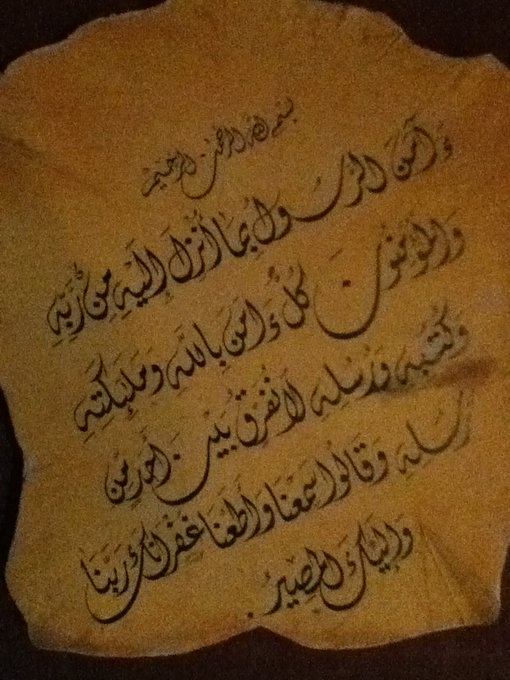 بسم الله الرحمن الرحيم
ءَامَنَ الرَّسُولُ بِمَا أُنزِلَ إِلَيْهِ مِن رَّبِّهِ
وَالْمُؤْمِنُونَ كُلٌّ ءَامَنَ بِاللَّهِ وَمَلَئِكَتِهِ
وَكُتُبِهِ وَرُسُلِهِ لَا نُفَرِّقُ بَيْنَ أَحَدٍ مِّن
رُّسُلِهِ وَقَالُوا سَمِعْنَا وَأَطَعْنَا غُفْرَانَكَ رَبَّنَا
وَإِلَيْكَ الْمَصِيرُ.